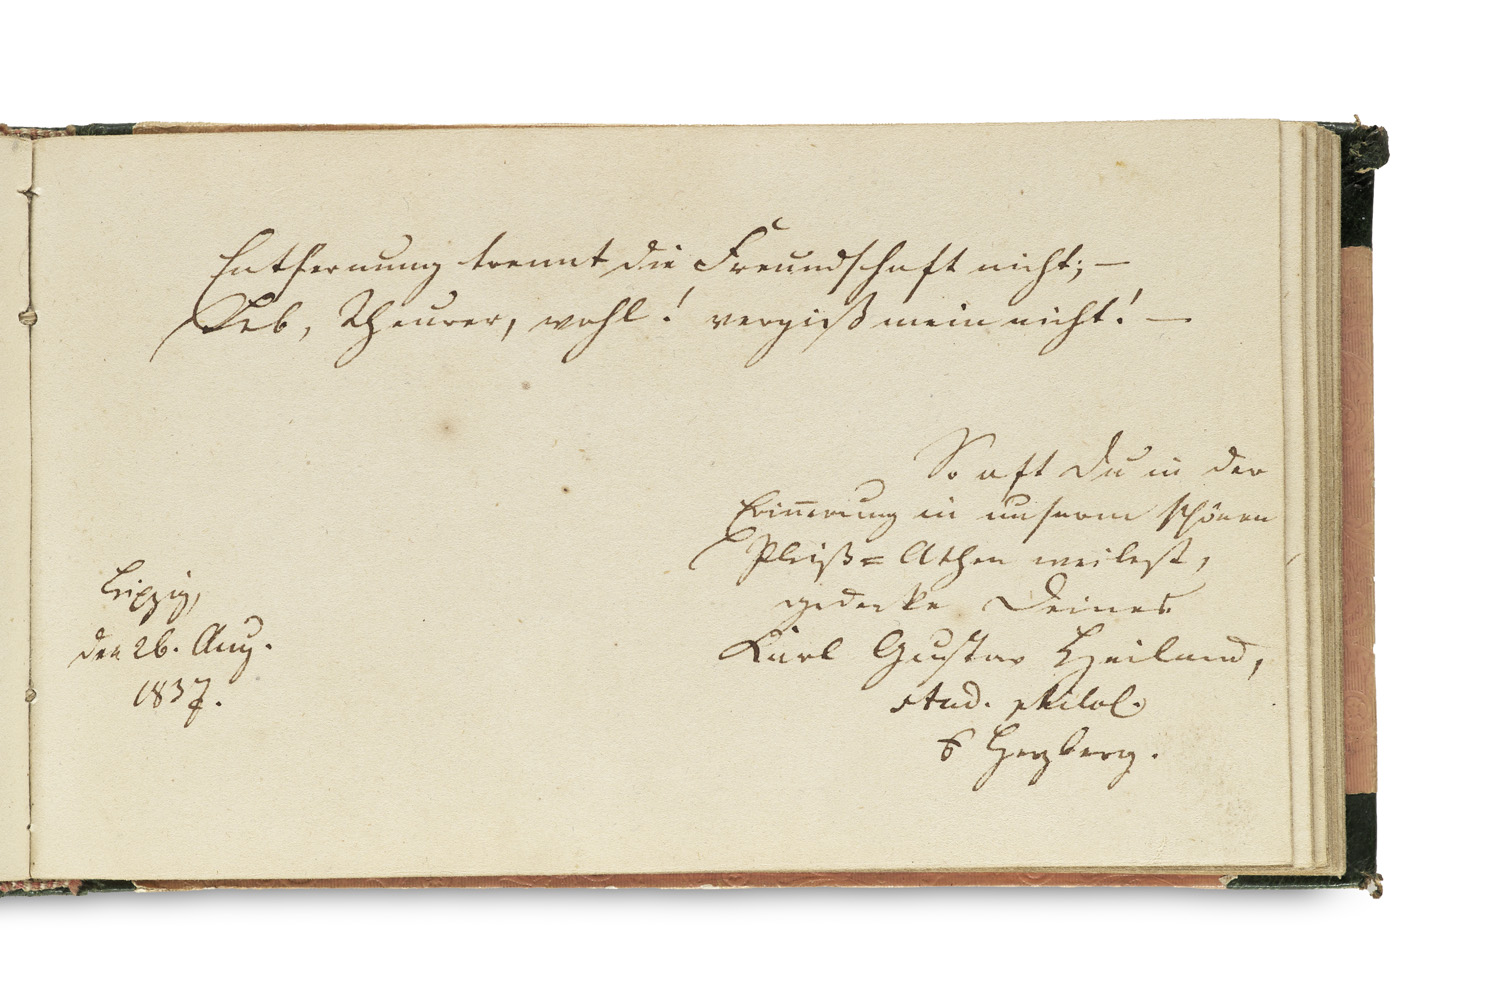 Entfernung trennt die Freundschaft nicht; —
Leb, Theurer, wohl! vergiß mein nicht! —
So oft Du in der
Erin̄erung in unserm schönen
Pleiß= Athen weilest,
gedenke Deines
Karl Gustav Heiland,
stud. philol.
Herzberg.
Leipzig,
den 26. Aug.
1837.